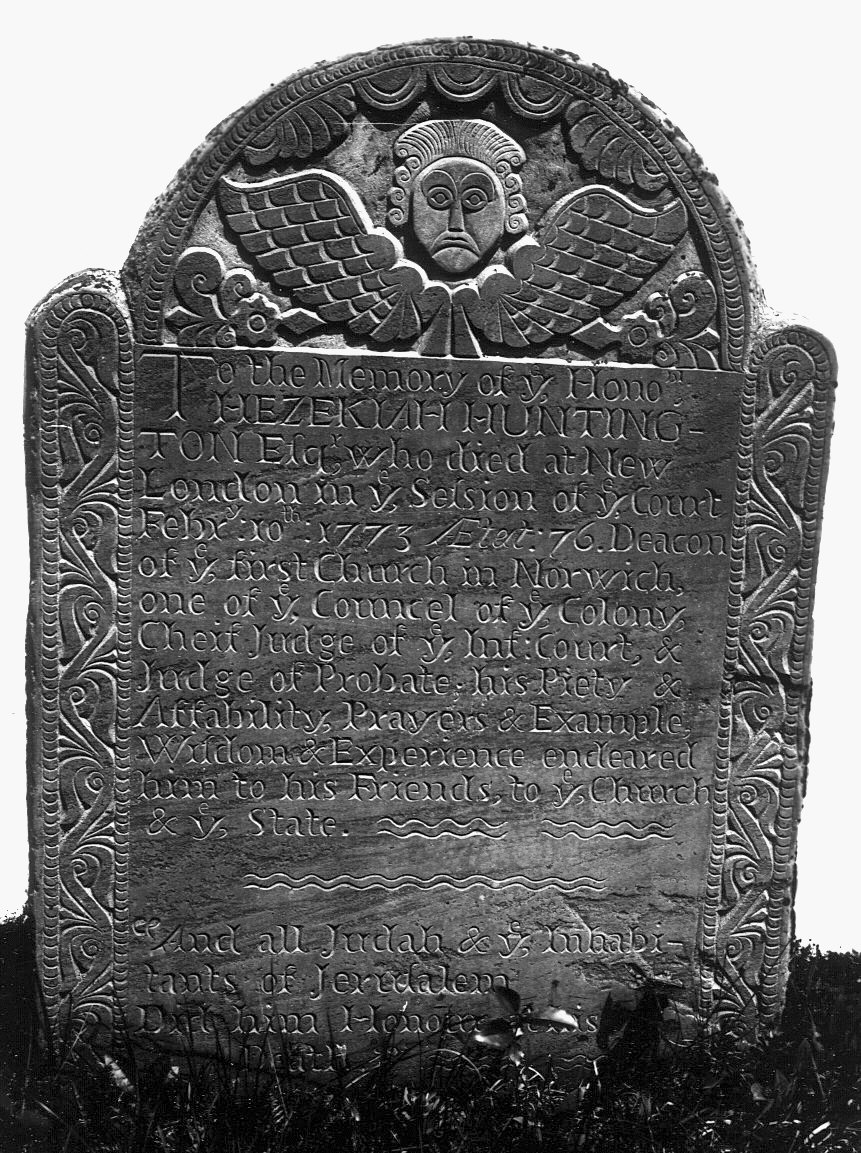 To the Memory of yͤ, Honoⁿ.
HEZEKIAH HUNTING-
TON Eſqʳ, who died at New
London in yͤ, Seſsion of yͤ, Court
Febrʸ. 10ᵗʰ: 1773 Ætat: 76. Deacon
of yͤ, first Church in Norwich,
one of yͤ, Councel of yͤ Colony,
Cheif Judge of yͤ, Inf: Court, &
Judge of Probate, his Piety &
Affability, Prayers & Example,
Wiſdom & Experience endeared
him to his Friends, to yͤ, Church
& yͤ, State.
"And all Judah & yͤ, Inhabi-
tants of Jeruſalem
Did him Honour at his
Death